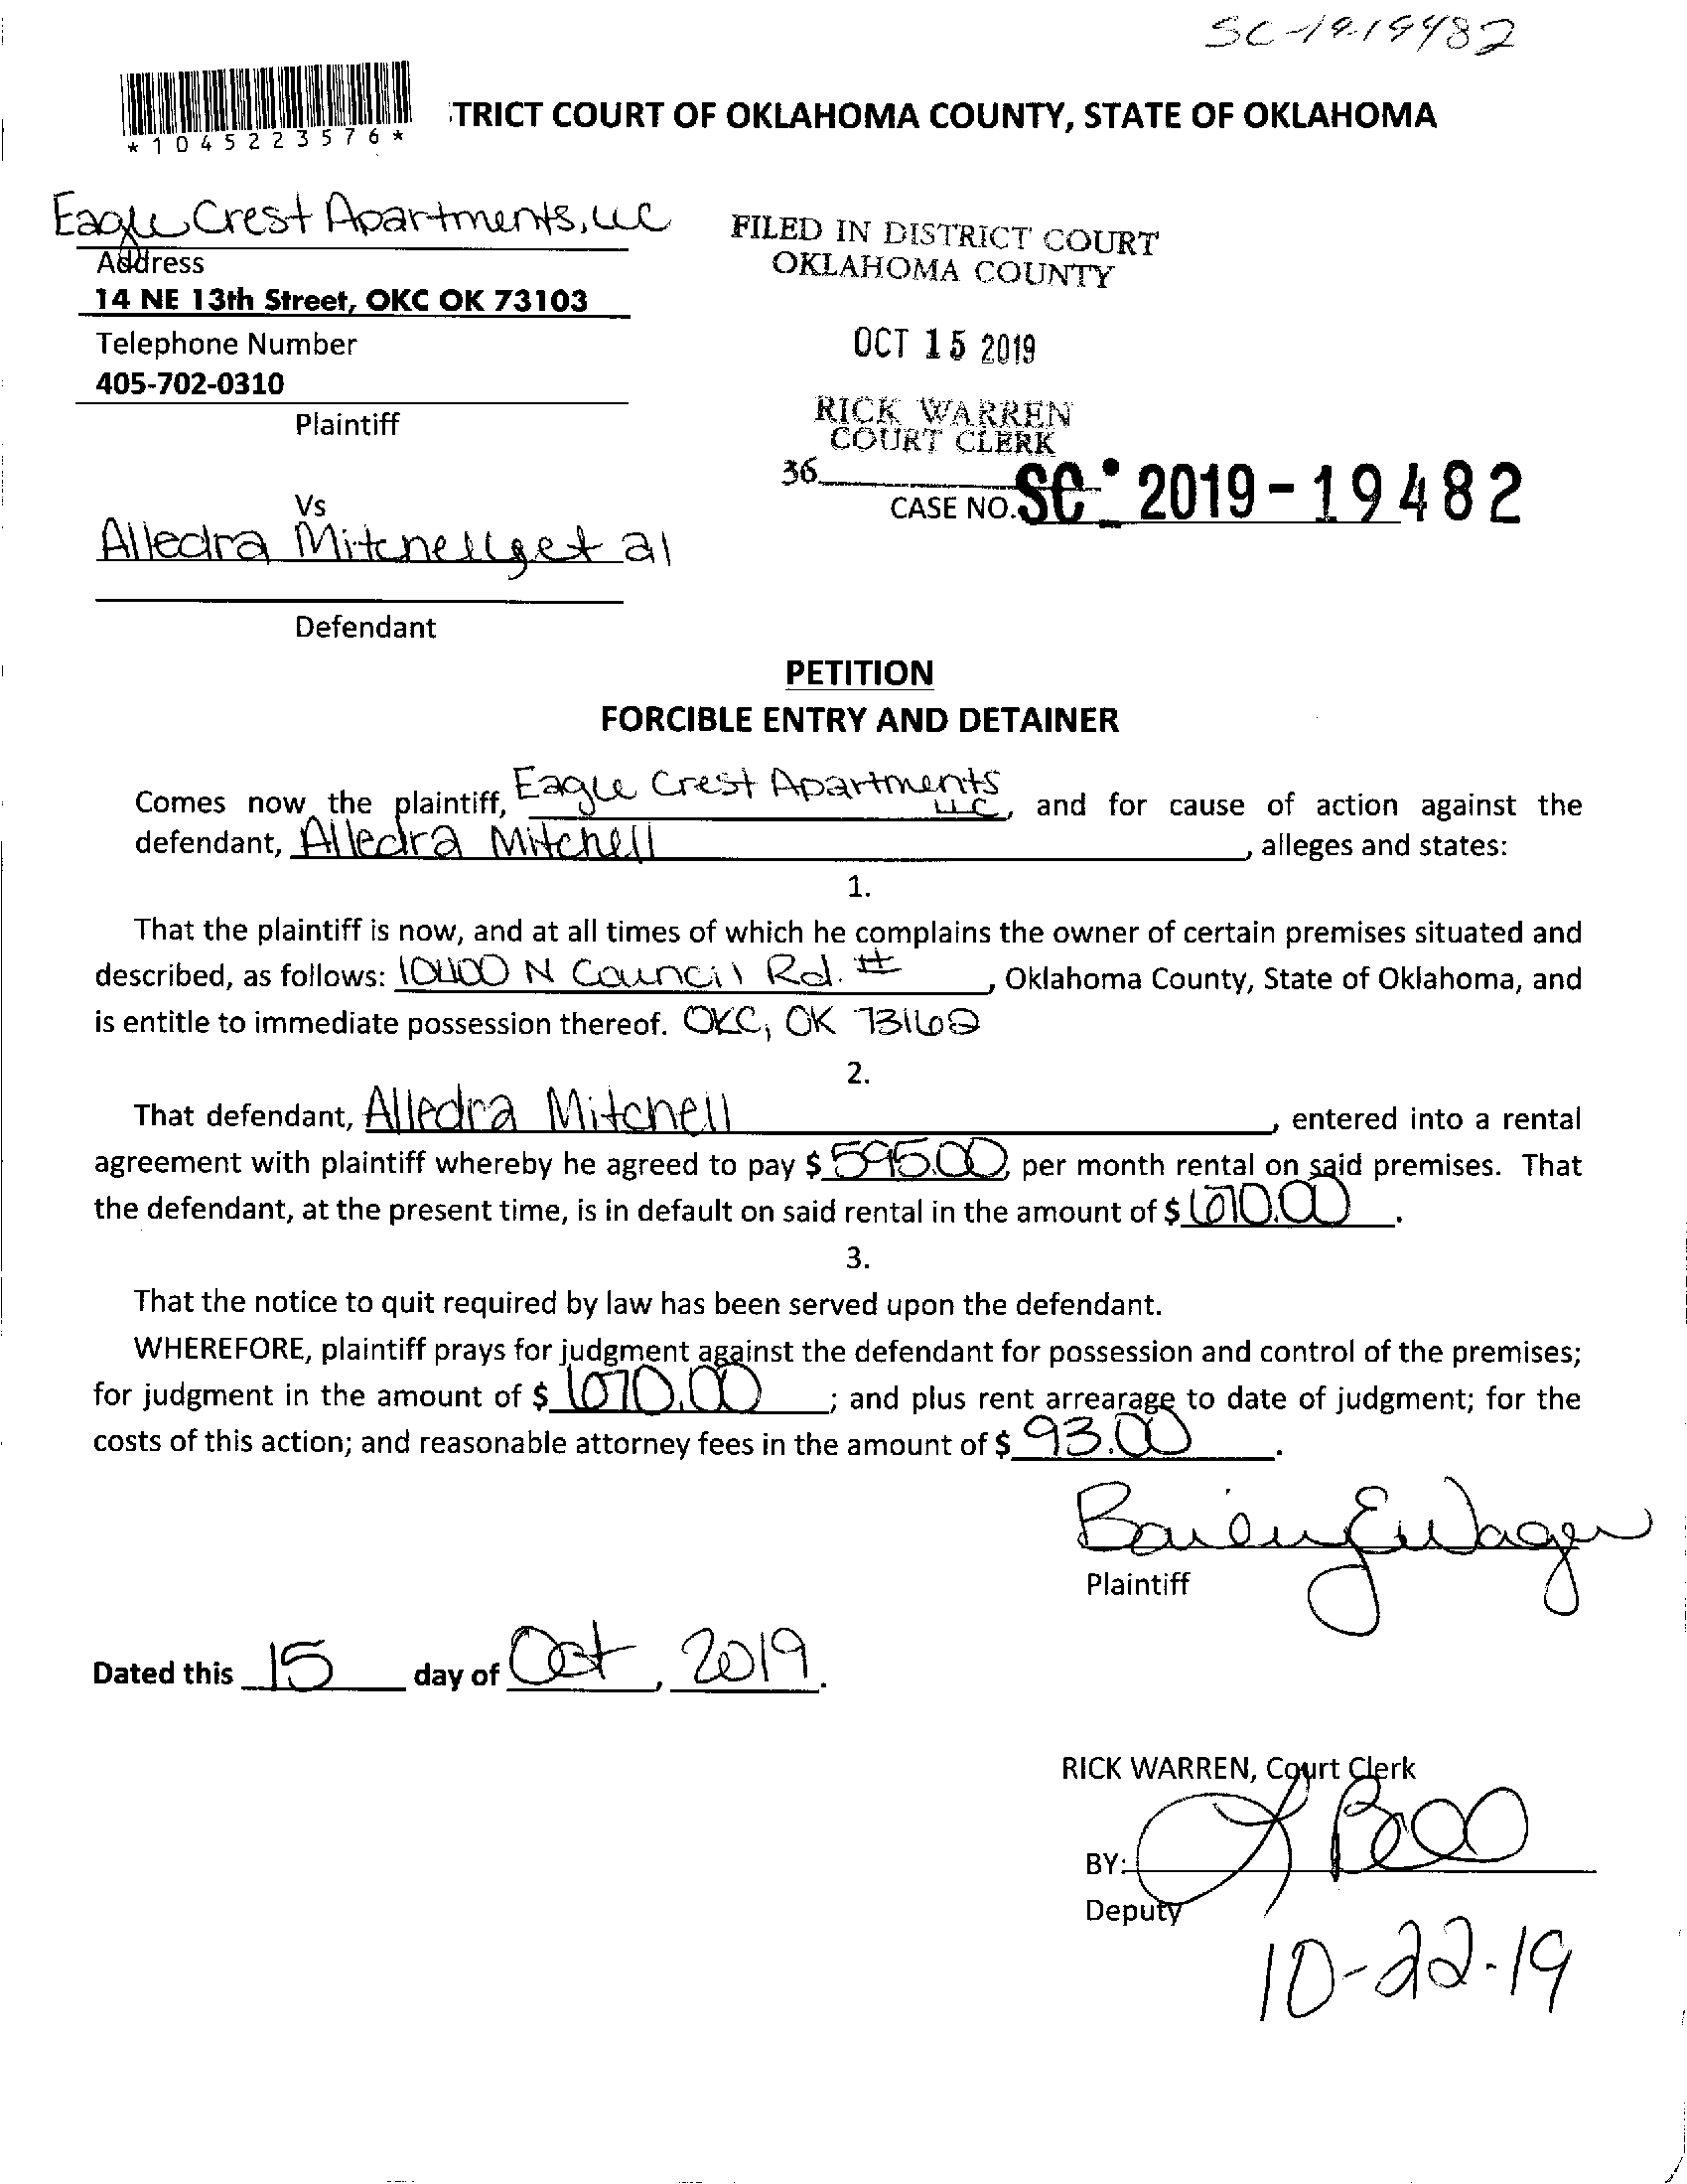 SC-19-19482
*1045223576*
TRICT COURT OF OKLAHOMA COUNTY, STATE OF OKLAHOMA
Eagle Crest Apartments, LLC
Address
14 NE 13th Street, OKC OK 73103
Telephone Number
405-702-0310
Plaintiff
FILED IN DISTRICT COURT
OKLAHOMA COUNTY
OCT 15 2019
RICK WARREN
COURT CLERK
36
CASE NO. SC-2019-19482
Vs
Alledra Mitchell, et al
Defendant
PETITION
FORCIBLE ENTRY AND DETAINER
Comes now the plaintiff, Eagle Crest Apartments LLC, and for cause of action against the
defendant, Alledra Mitchell, alleges and states:
1.
That the plaintiff is now, and at all times of which he complains the owner of certain premises situated and
described, as follows: N Council Rd. #, Oklahoma County, State of Oklahoma, and
is entitle to immediate possession thereof. OKC, OK 73162
2.
That defendant, Alledra Mitchell, entered into a rental
agreement with plaintiff whereby he agreed to pay $ 595.00, per month rental on said premises. That
the defendant, at the present time, is in default on said rental in the amount of $ 1070.00.
3.
That the notice to quit required by law has been served upon the defendant.
WHEREFORE, plaintiff prays for judgment against the defendant for possession and control of the premises;
for judgment in the amount of $ 1070.00; and plus rent arrearage to date of judgment; for the
costs of this action; and reasonable attorney fees in the amount of $ 93.00.
Plaintiff
Dated this 15 day of Oct, 2019.
RICK WARREN, Court Clerk
BY:
Deputy
10-22-19